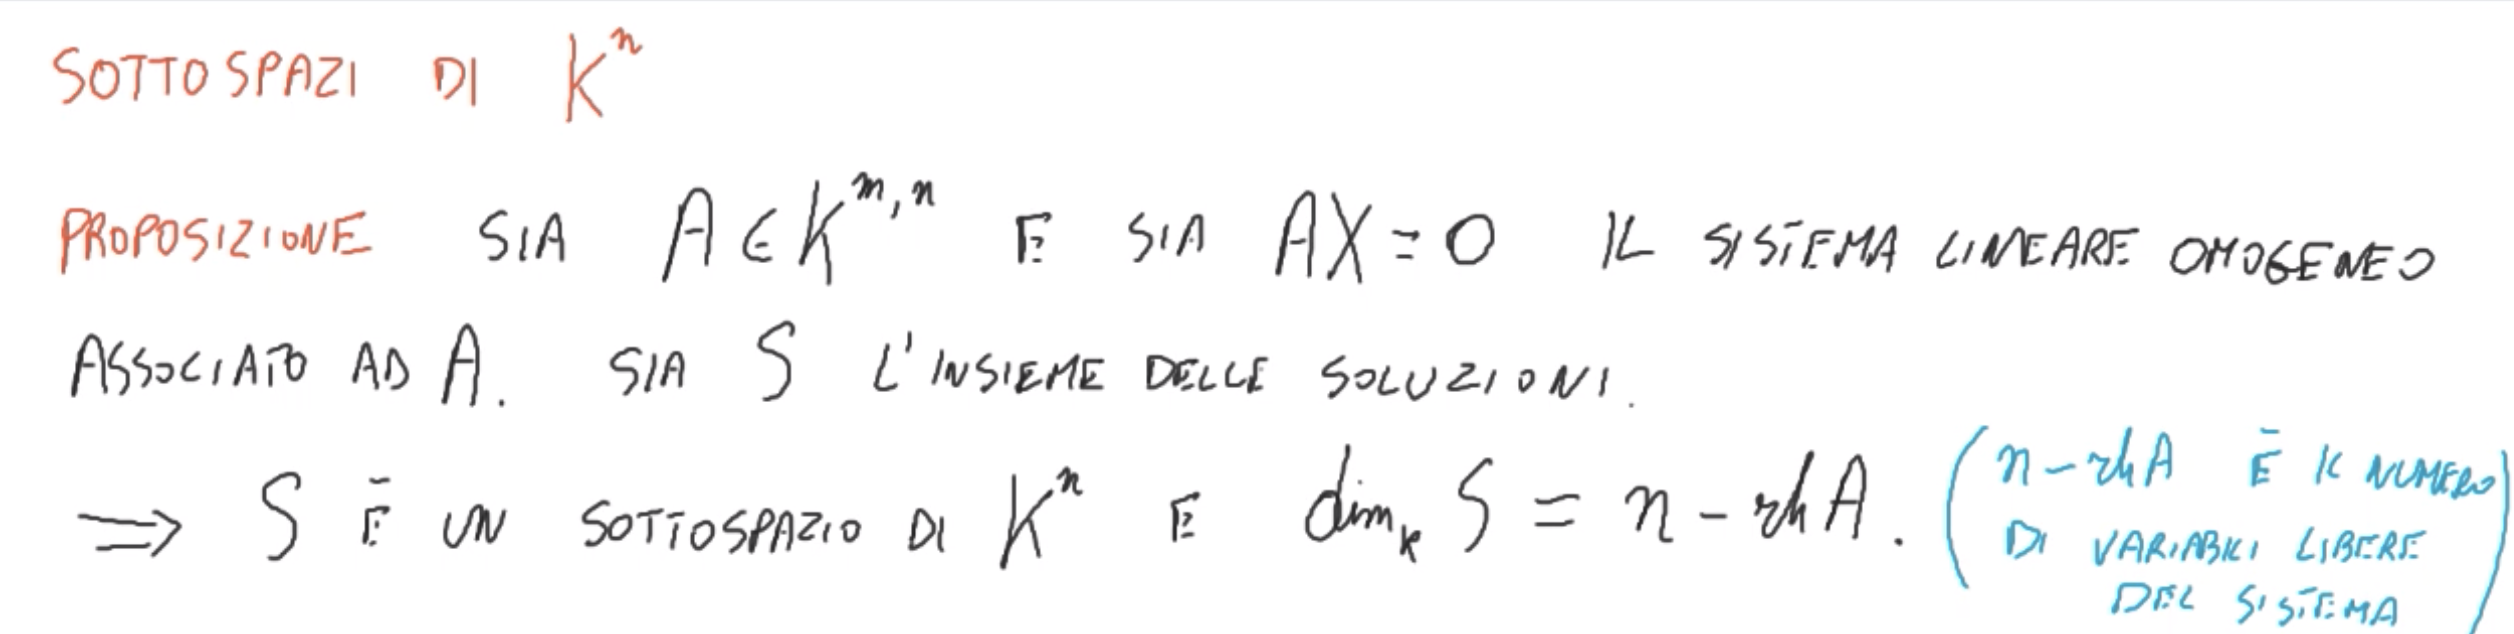 SOTTOSPAZI DI Kⁿ
PROPOSIZIONE SIA A ∈ K^{m,n} E SIA AX = 0 IL SISTEMA LINEARE OMOGENEO
ASSOCIATO AD A. SIA S L'INSIEME DELLE SOLUZIONI.
⇒ S È UN SOTTOSPAZIO DI Kⁿ E dim_K S = n - rk A. (n - rk A È IL NUMERO
DI VARIABILI LIBERE
DEL SISTEMA)